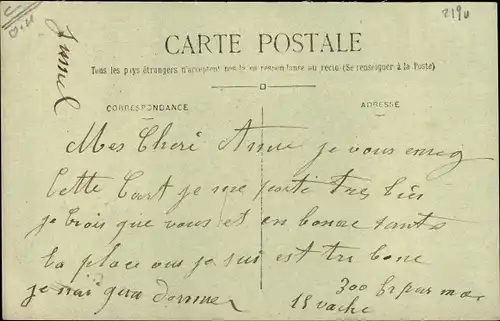 219u
CARTE POSTALE
Tous les pays étrangers n'acceptent pas la correspondance au recto (Se renseigner à la Poste)
CORRESPONDANCE
ADRESSE
Mes Cheré Amie je vous envog
Cette Cart je me porte tres bies
je crois que vous et en bonne sante
la place ou je sui est tre bone
je nai qua donner 300 fr par moi
15 vache